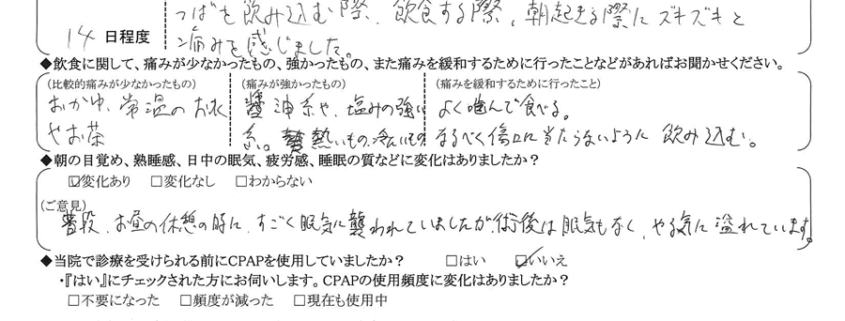 つばを飲み込む際、飲食する際、朝起きる際にズキズキと
14 日程度 痛みを感じました。
◆飲食に関して、痛みが少なかったもの、強かったもの、また痛みを緩和するために行ったことなどがあればお聞かせください。
(比較的痛みが少なかったもの) (痛みが強かったもの) (痛みを緩和するために行ったこと)
おかゆ、常温のお水 醤油系や、塩みの強い よく噛んで食べる。
やお茶 系。熱いもの、冷たいもの なるべく傷口に当たらないように飲み込む。
◆朝の目覚め、熟睡感、日中の眠気、疲労感、睡眠の質などに変化はありましたか？
☑変化あり □変化なし □わからない
(ご意見)
普段、お昼の休憩の時に、すごく眠気に襲われていましたが、術後は眠気もなく、やる気に溢れています。
◆当院で診療を受けられる前にCPAPを使用していましたか？ □はい ☑いいえ
・『はい』にチェックされた方にお伺いします。CPAPの使用頻度に変化はありましたか？
□不要になった □頻度が減った □現在も使用中